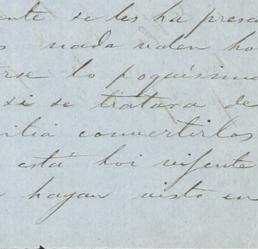 ente se les ha presa
s nada valen ho
rse lo poquíssimo
si se tratara de
itiá convertirlos
está hoi vijente
hayan visto en